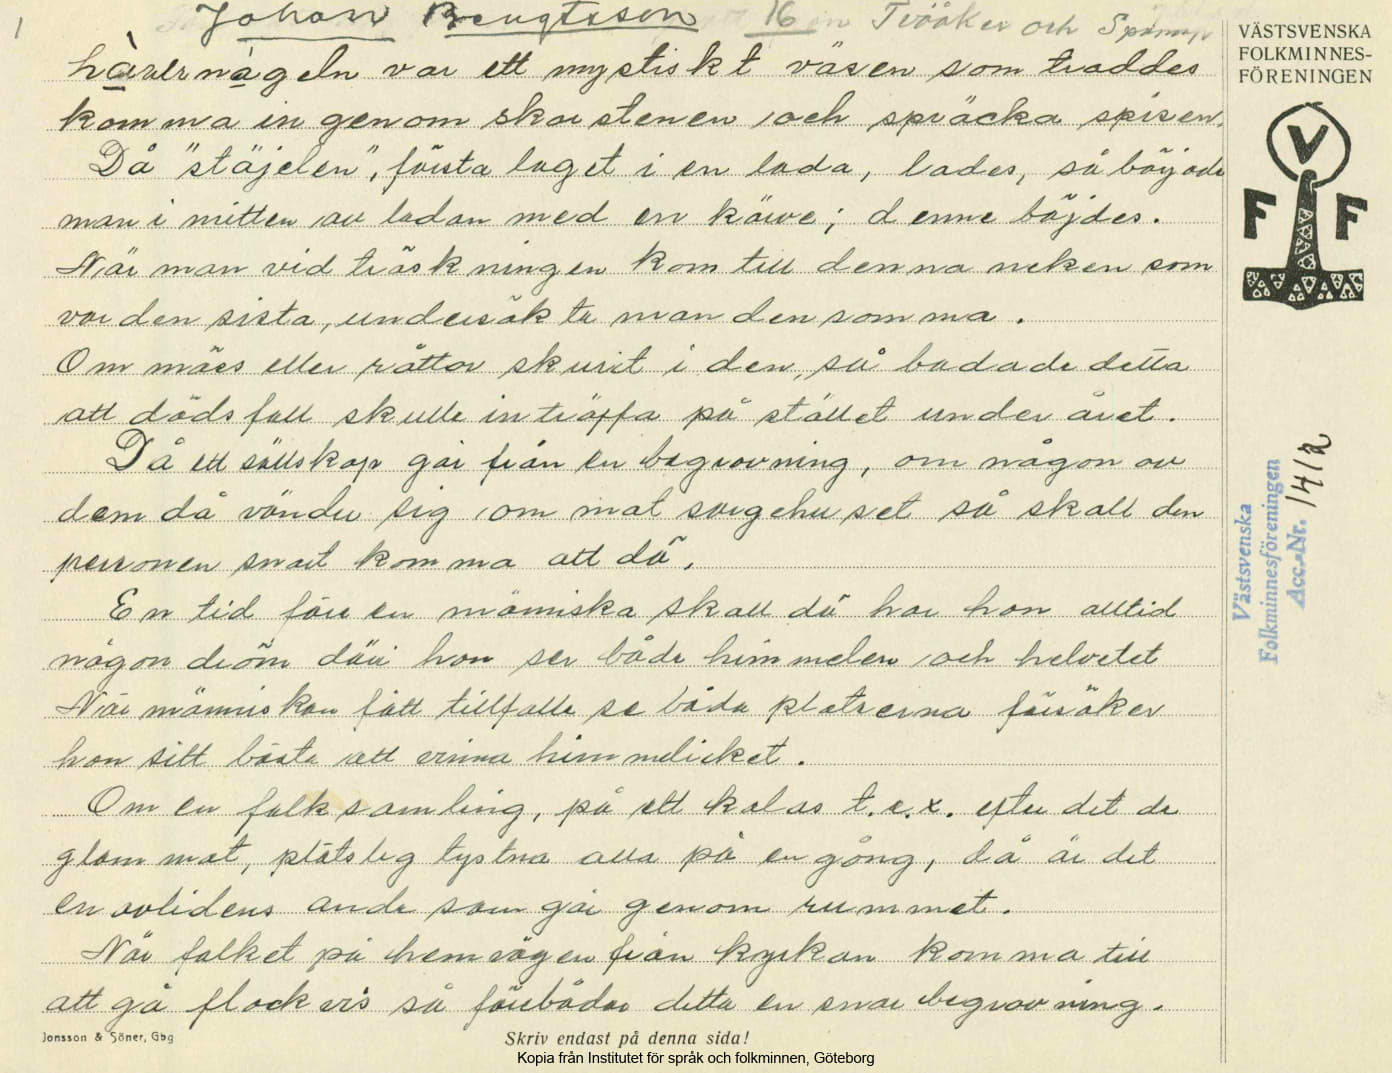 1
Johan Bengtsson 16 Tvååker och
håvernågeln var ett mystiskt väsen som troddes
komma in genom skorstenen och spräcka spisen.
Då "stäjelen", första laget i en lada, lades, så började
man i mitten av ladan med en kärve; denne böjdes.
När man vid tröskningen kom till denna neken som
var den sista, undersökte man densamma.
Om möss eller råttor skurit i den, så badade detta
att dödsfall skulle inträffa på stället under året.
Då ett sällskap går från en begravning, om någon av
dem då vänder sig om mot sorgehuset så skall den
personen snart komma att dö.
En tid före en människa skall dö har hon alltid
någon dröm däri hon ser både himmelen och helvetet
När människan fått tillfälle se båda platserna försöker
hon sitt bästa att vinna himmelriket.
Om en folksamling, på ett kalas t.e.x. efter det de
glam mat, plötsleg tystna alla på en gång, då är det
en avlidens ande som går genom rummet.
När folket på hemvägen från kyrkan komma till
att gå flockvis så förebådar detta en snar begravning.
VÄSTSVENSKA
FOLKMINNES-
FÖRENINGEN
V
F F
Västsvenska
Folkminnesföreningen
Acc.-Nr. 1412
Jonsson & Söner, Gbg
Skriv endast på denna sida!
Kopia från Institutet för språk och folkminnen, Göteborg